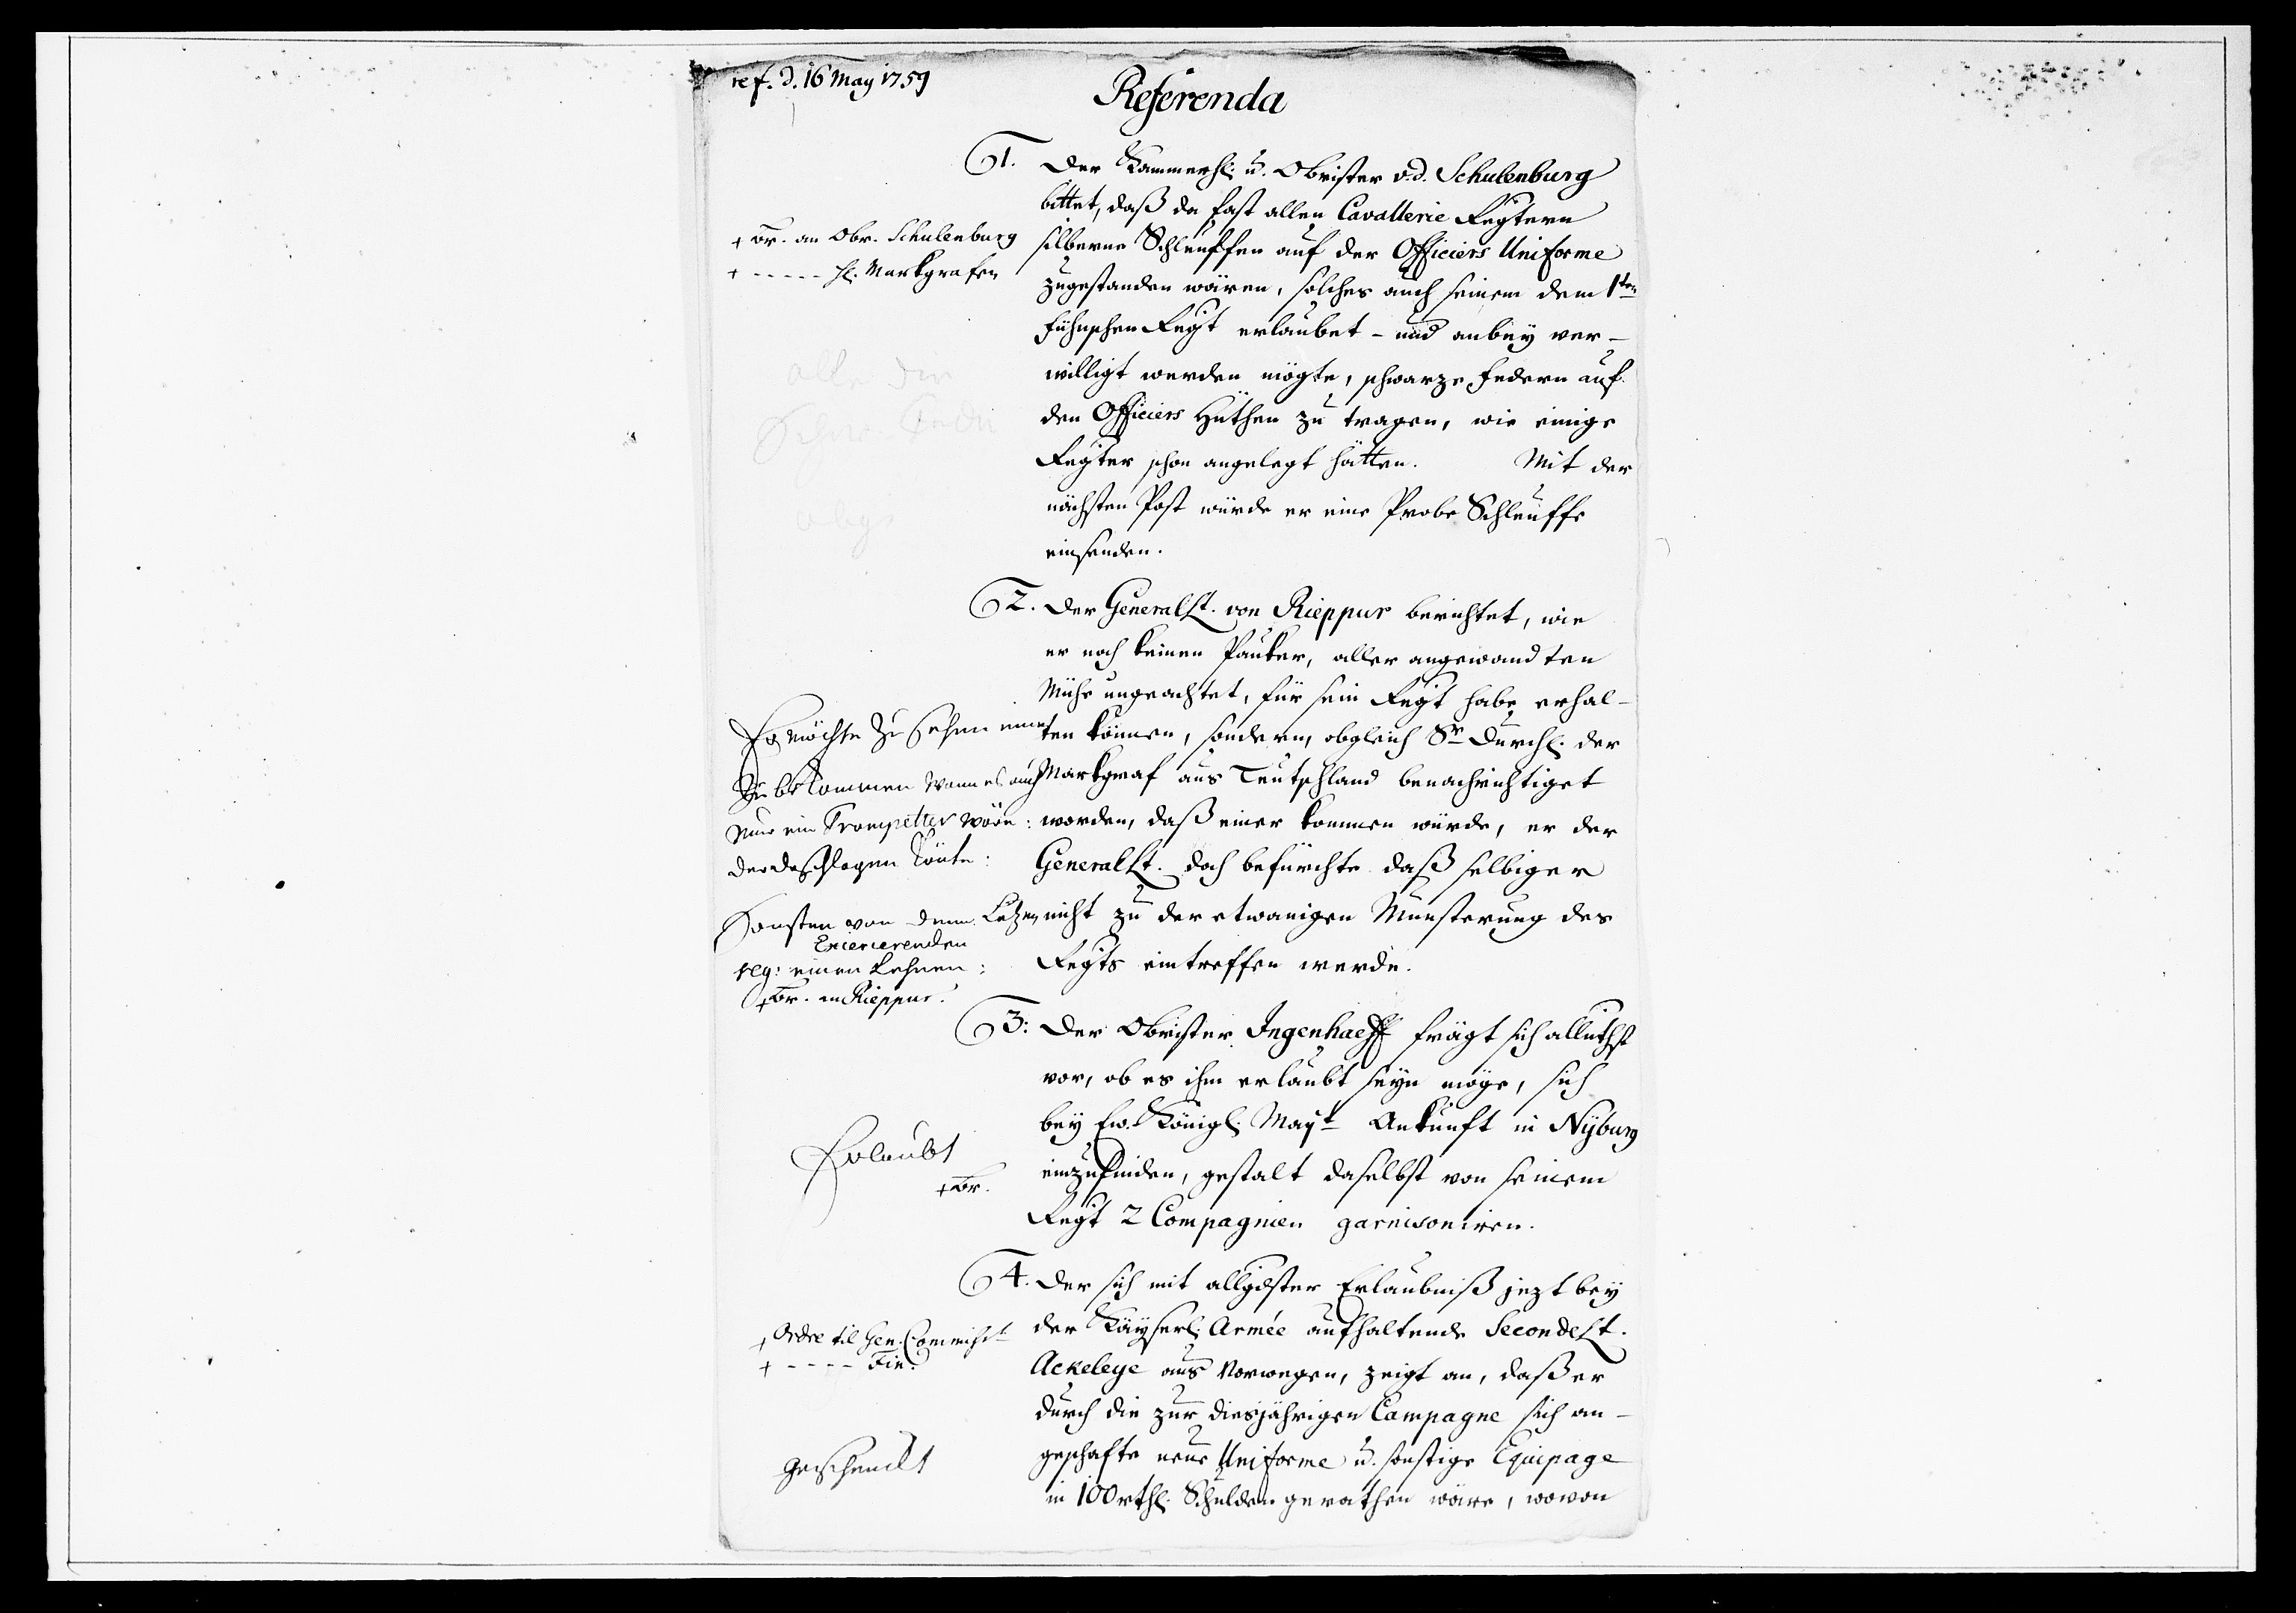 ref. d. 16 May 1759
Referenda
1. Der Kammerh: u. Obrister v. d. Schulenburg
bittet, daß da fast allen Cavallerie Regtern
silberne Schleuffen auf der Officiers Uniforme
zugestanden wären, solches auch seinem dem 1ten
Fühnschen Regt erlaubet - und anbey ver-
willigt werden mögte, schwarze Federn auf
den Officiers Hüthen zu tragen, wie einige
Regter schon angelegt hätten. Mit der
nächsten Post würde er eine Probe Schleuffe
einsenden.
+ Br. an Obr. Schulenburg
+ - - - - - H. Markgrafen
alle die
2. Der General Lt. von Rieppur berichtet, wie
er noch keinen Pauker, aller angewandten
Mühe ungeachtet, für sein Regt habe erhal-
ten können, sondern, obgleich Sr Durchl. der
Markgraf aus Teutschland benachrichtiget
worden, daß einer kommen würde, er der
General Lt. doch befürchte daß selbiger
nicht zu der etwanigen Munsterung des
Regts eintreffen werde.
Er möchte zu sehen einen
zu bekommen wann es auch
nur ein Trompetter wäre:
der da schlagen könte:
Sonsten von denn
Exercierenden
reg: einen Lehnen:
+ Br. an Rieppur.
3: Der Obrister Ingenhaeff frägt sich alluthst
vor, ob es ihm erlaubt seyn möge, sich
bey Ew. Königl. Mayt Ankunft in Nyburg
einzufinden, gestalt daselbst von seinem
Regt 2 Compagnien garnisoniren.
Erlaubt
+ Br.
4. Der sich mit allgdster Erlaubniß jezt bey
der Kayserl. Armée aufhaltende Second Lt.
Ackeleye aus Norwegen, zeigt an, daß er
durch die zur diesjährigen Campagne sich an-
geschafte neue Uniforme u. sonstige Equipage
in 100 rthl. Schulden gerathen wäre, wovon
+ Ordre til Gen. Commisst
+ - - - - Fin.
geschenckt